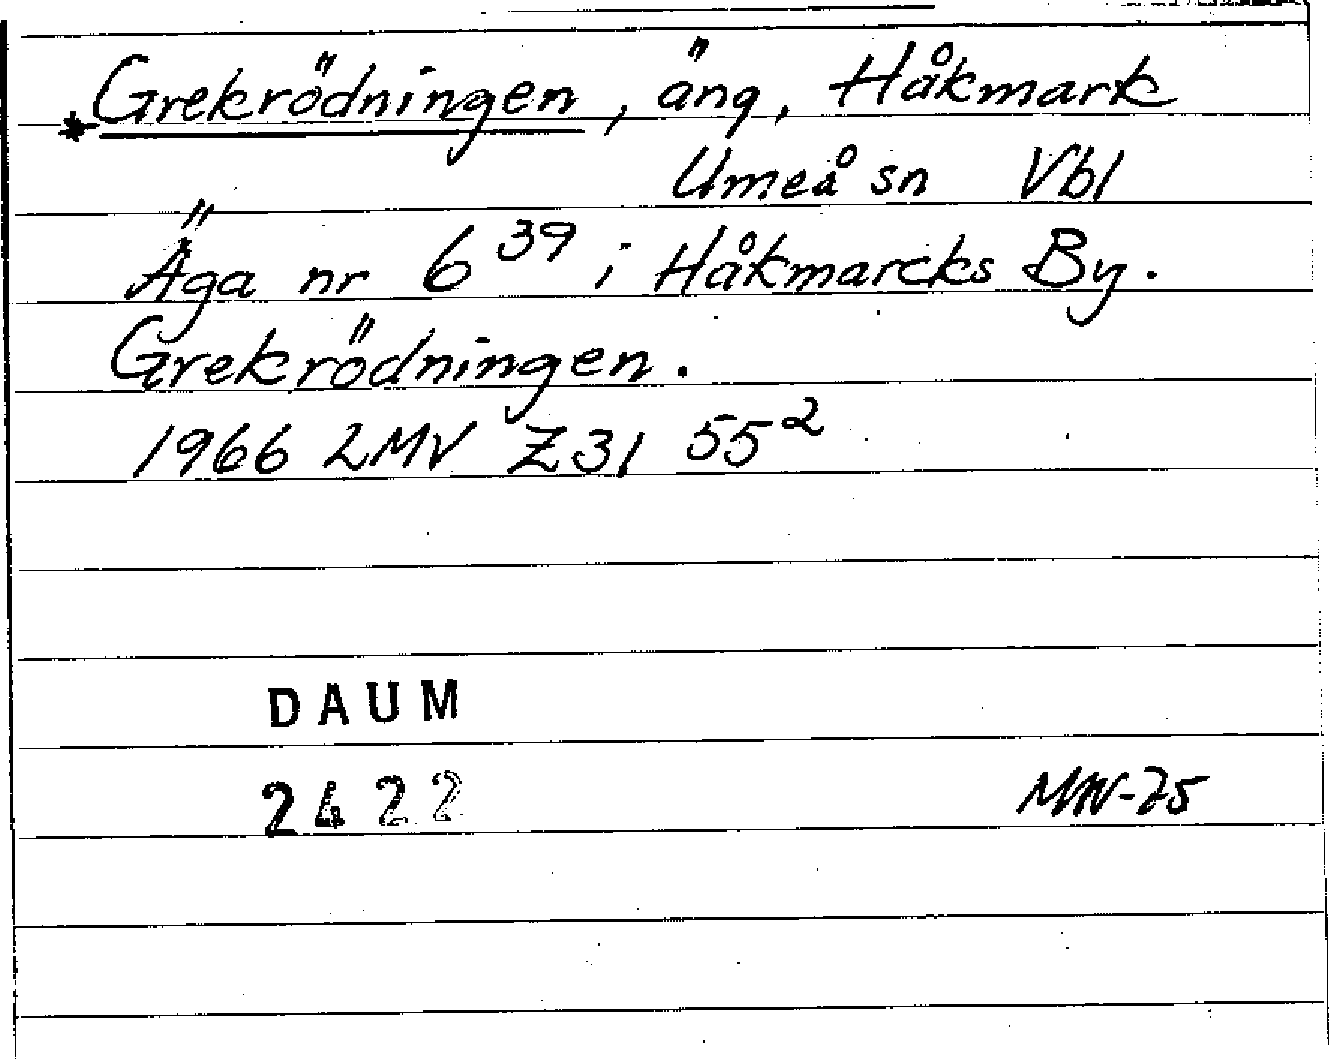 *Grekrödningen, äng, Håkmark
Umeå sn Vbl
Äga nr 6 39 i Håkmarcks By.
Grekrödningen.
1966 LMV Z31 55 2
DAUM
2422
MW-75